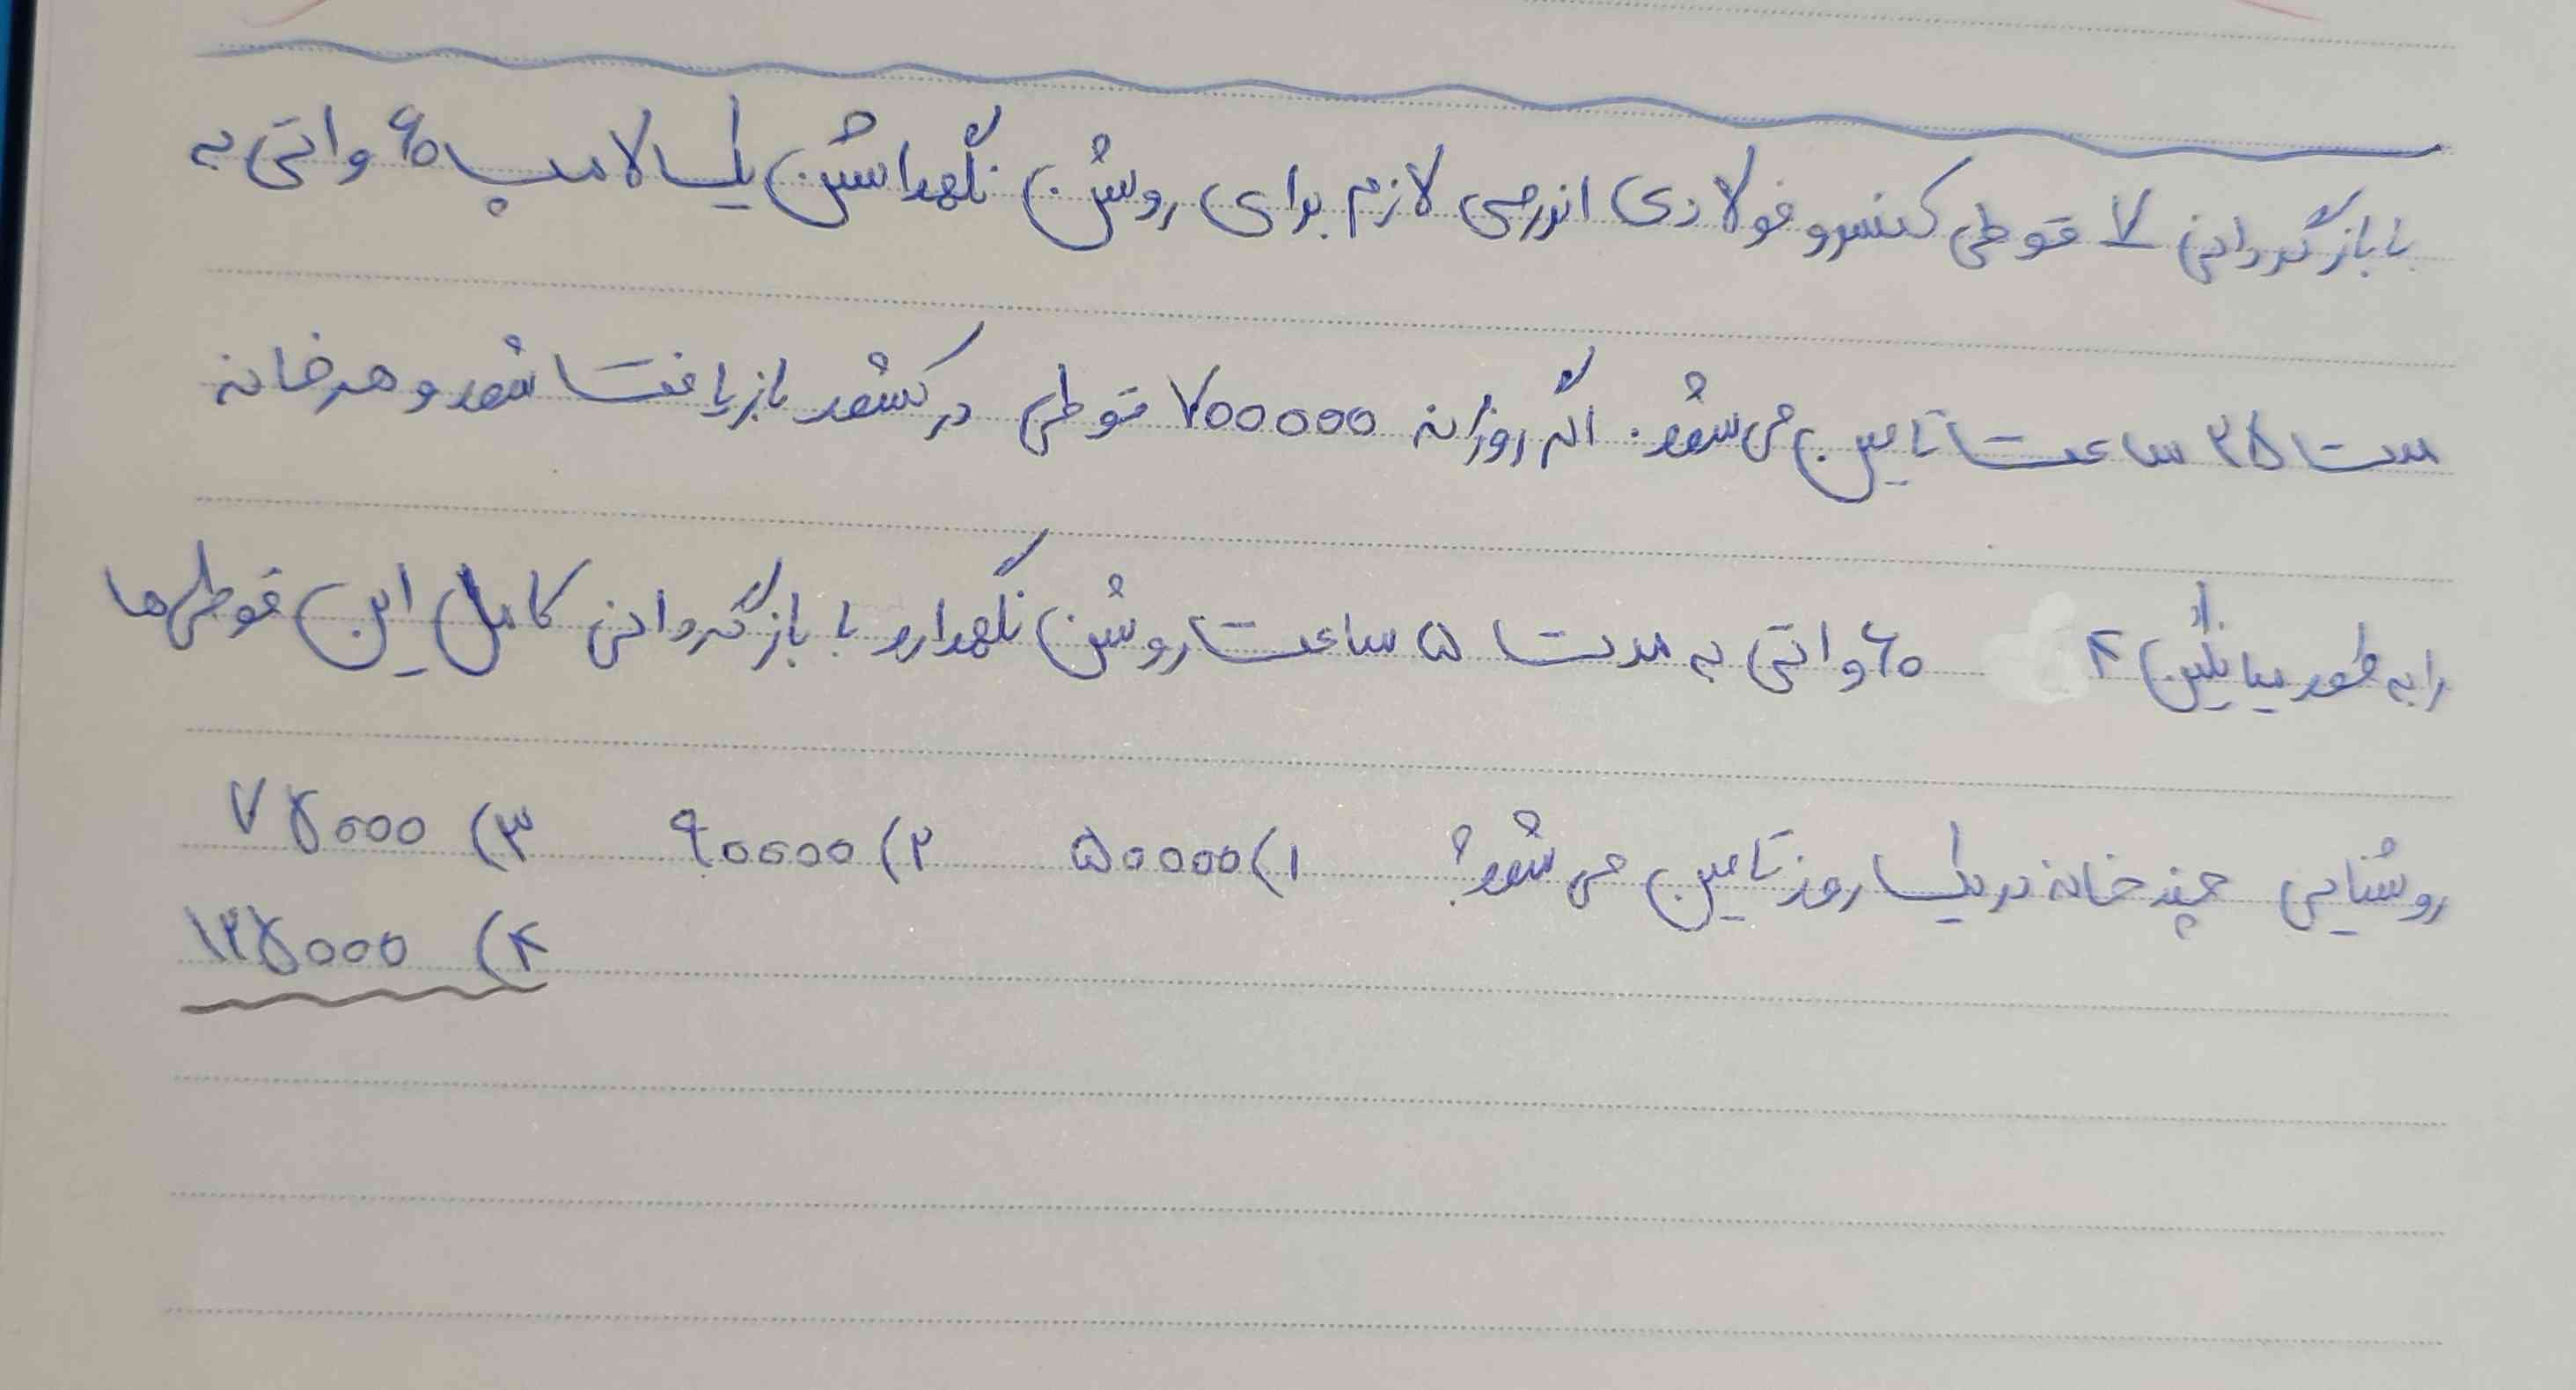 با بازگردانی ۷ قوطی کنسرو فولادی انرژی لازم برای روشن نگهداشتن یک لامپ ۶۰ واتی به
مدت ۲۵ ساعت تامین می شود. اگر روزانه ۷۰۰۰۰۰ قوطی در کشور بازیافت شود و هر خانه
را به طور میانگین ۴ ۶۰ واتی به مدت ۵ ساعت روشن نگهدارد با بازگردانی کامل این قوطی ها
روشنایی چند خانه در یک روز تامین می شود؟ ۱) ۵۰۰۰۰ ۲) ۹۰۰۰۰ ۳) ۷۵۰۰۰
۴) ۱۲۵۰۰۰